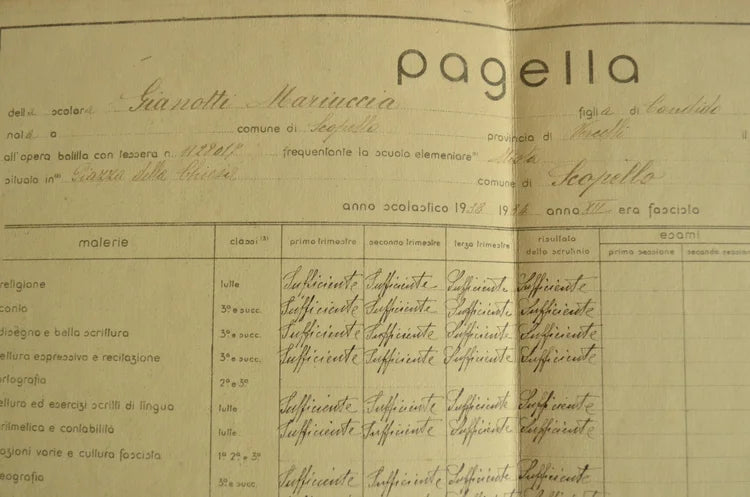 pagella
della scolara Gianotti Mariuccia figlia di Candido
nata a comune di Scopello provincia di Vercelli il
all'opera balilla con tessera n. frequentante la scuola elementare Mista
situata in Piazza della Chiesa comune di Scopello
anno scolastico 1933 1934 anno XII era fascista
materie classi primo trimestre secondo trimestre terzo trimestre risultato dello scrutinio esami
prima sessione seconda sessione
religione tutte Sufficiente Sufficiente Sufficiente Sufficiente
canto 3ª e succ. Sufficiente Sufficiente Sufficiente Sufficiente
disegno e bella scrittura 3ª e succ. Sufficiente Sufficiente Sufficiente Sufficiente
ettura espressiva e recitazione 3ª e succ. Sufficiente Sufficiente Sufficiente Sufficiente
ortografia 2ª e 3ª
ettura ed esercizi scritti di lingua tutte Sufficiente Sufficiente Sufficiente Sufficiente
ritmetica e contabilità tutte Sufficiente Sufficiente Sufficiente Sufficiente
ozioni varie e cultura fascista 1ª 2ª e 3ª
eografia 3ª e succ. Sufficiente Sufficiente Sufficiente Sufficiente